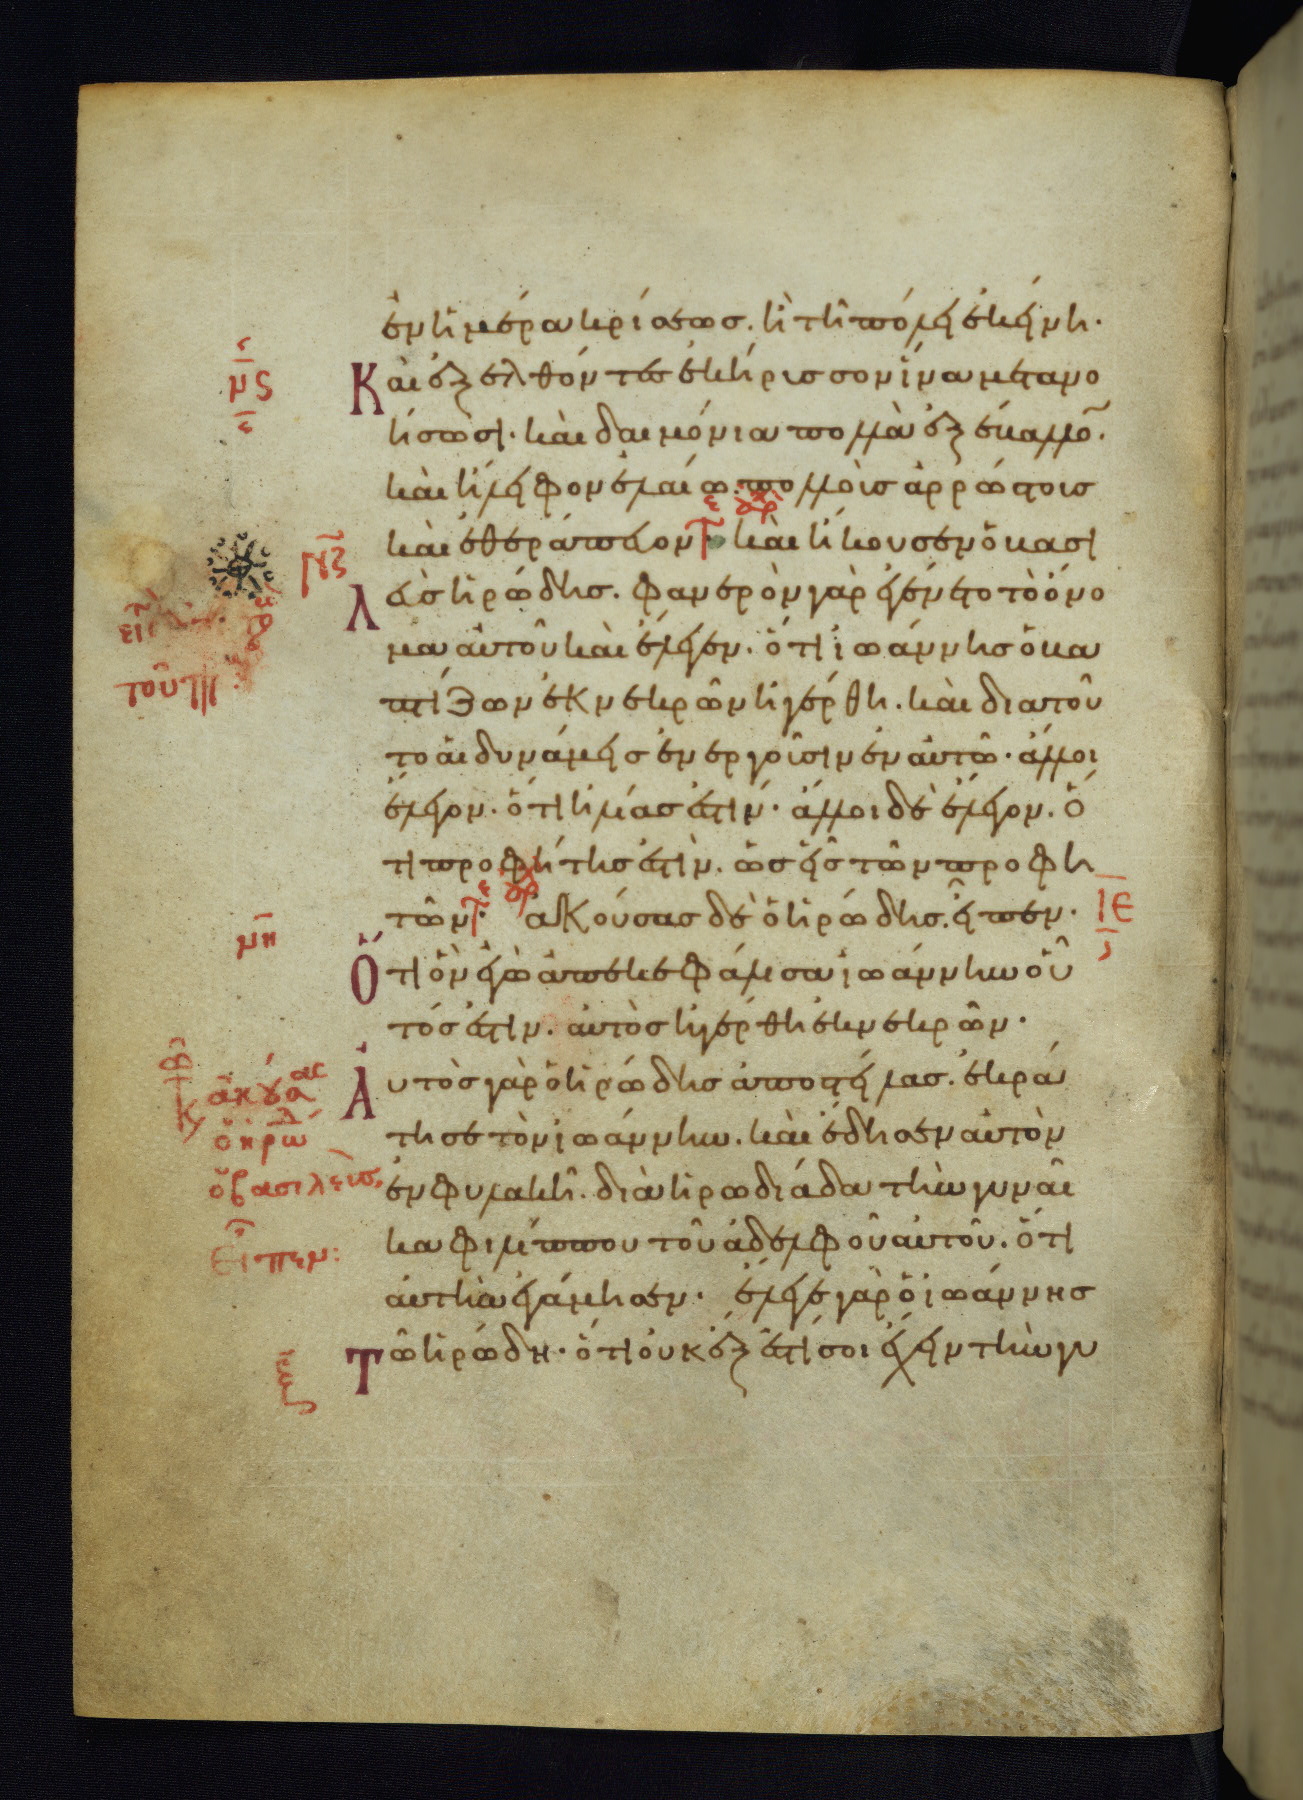 ἐν ἡμέρα κρίσεως. ἢ τῆ πόλει ἐκείνη·
Καὶ ἐξελθόντες ἐκήρισσον ἵνα μετανο
ήσωσι· καὶ δαιμόνια πολλὰ ἐξέκαλλο῀.
καὶ ἤλειφον ἐλαίω πολλοὺς ἀρρώστους
καὶ ἐθεράπευον· καὶ ἤκουσεν ὁ βασι
λεὺς ἡρώδης. φανερὸν γὰρ ἐγένετο τὸ ὄνο
μα αὐτοῦ καὶ ἔλεγεν. ὅτι ἰωάννης ὁ βα
πτίζων ἐκ νεκρῶν ἠγέρθη. καὶ διατοῦ
το αἱ δυνάμεις ἐνεργοῦσιν ἐν αὐτῶ· ἄλλοι
ἔλεγον. ὅτι ἡλίας ἐστίν· ἄλλοι δὲ ἔλεγον. ὅ
τι προφήτης ἐστὶν. ὡς εἷς τῶν προφη
τῶν· ἀκούσας δὲ ὁ ἡρώδης. εἶπεν·
Ὅτι ὃν ἐγὼ ἀπεκεφάλισα ἰωάννην οὗ
τός ἐστιν. αὐτὸς ἠγέρθη ἐκ νεκρῶν·
Αὐτὸς γὰρ ὁ ἡρώδης ἀποστείλας. ἐκρά
τησε τὸν ἰωάννην. καὶ ἔδησεν αὐτὸν
ἐν φυλακῆ. διὰ ἡρωδιάδα τὴν γυναῖ
κα φιλίππου τοῦ ἀδελφοῦ αὐτοῦ. ὅτι
αὐτὴν ἐγάμησεν· ἔλεγε γὰρ ὁ ἰωάννης
Τῶ ἡρώδη· ὅτι οὐκ ἔξεστί σοι ἔχειν τὴν γυ
μς
μη
ΙΕ
ὁ βασιλεὺς
εἶπεν: